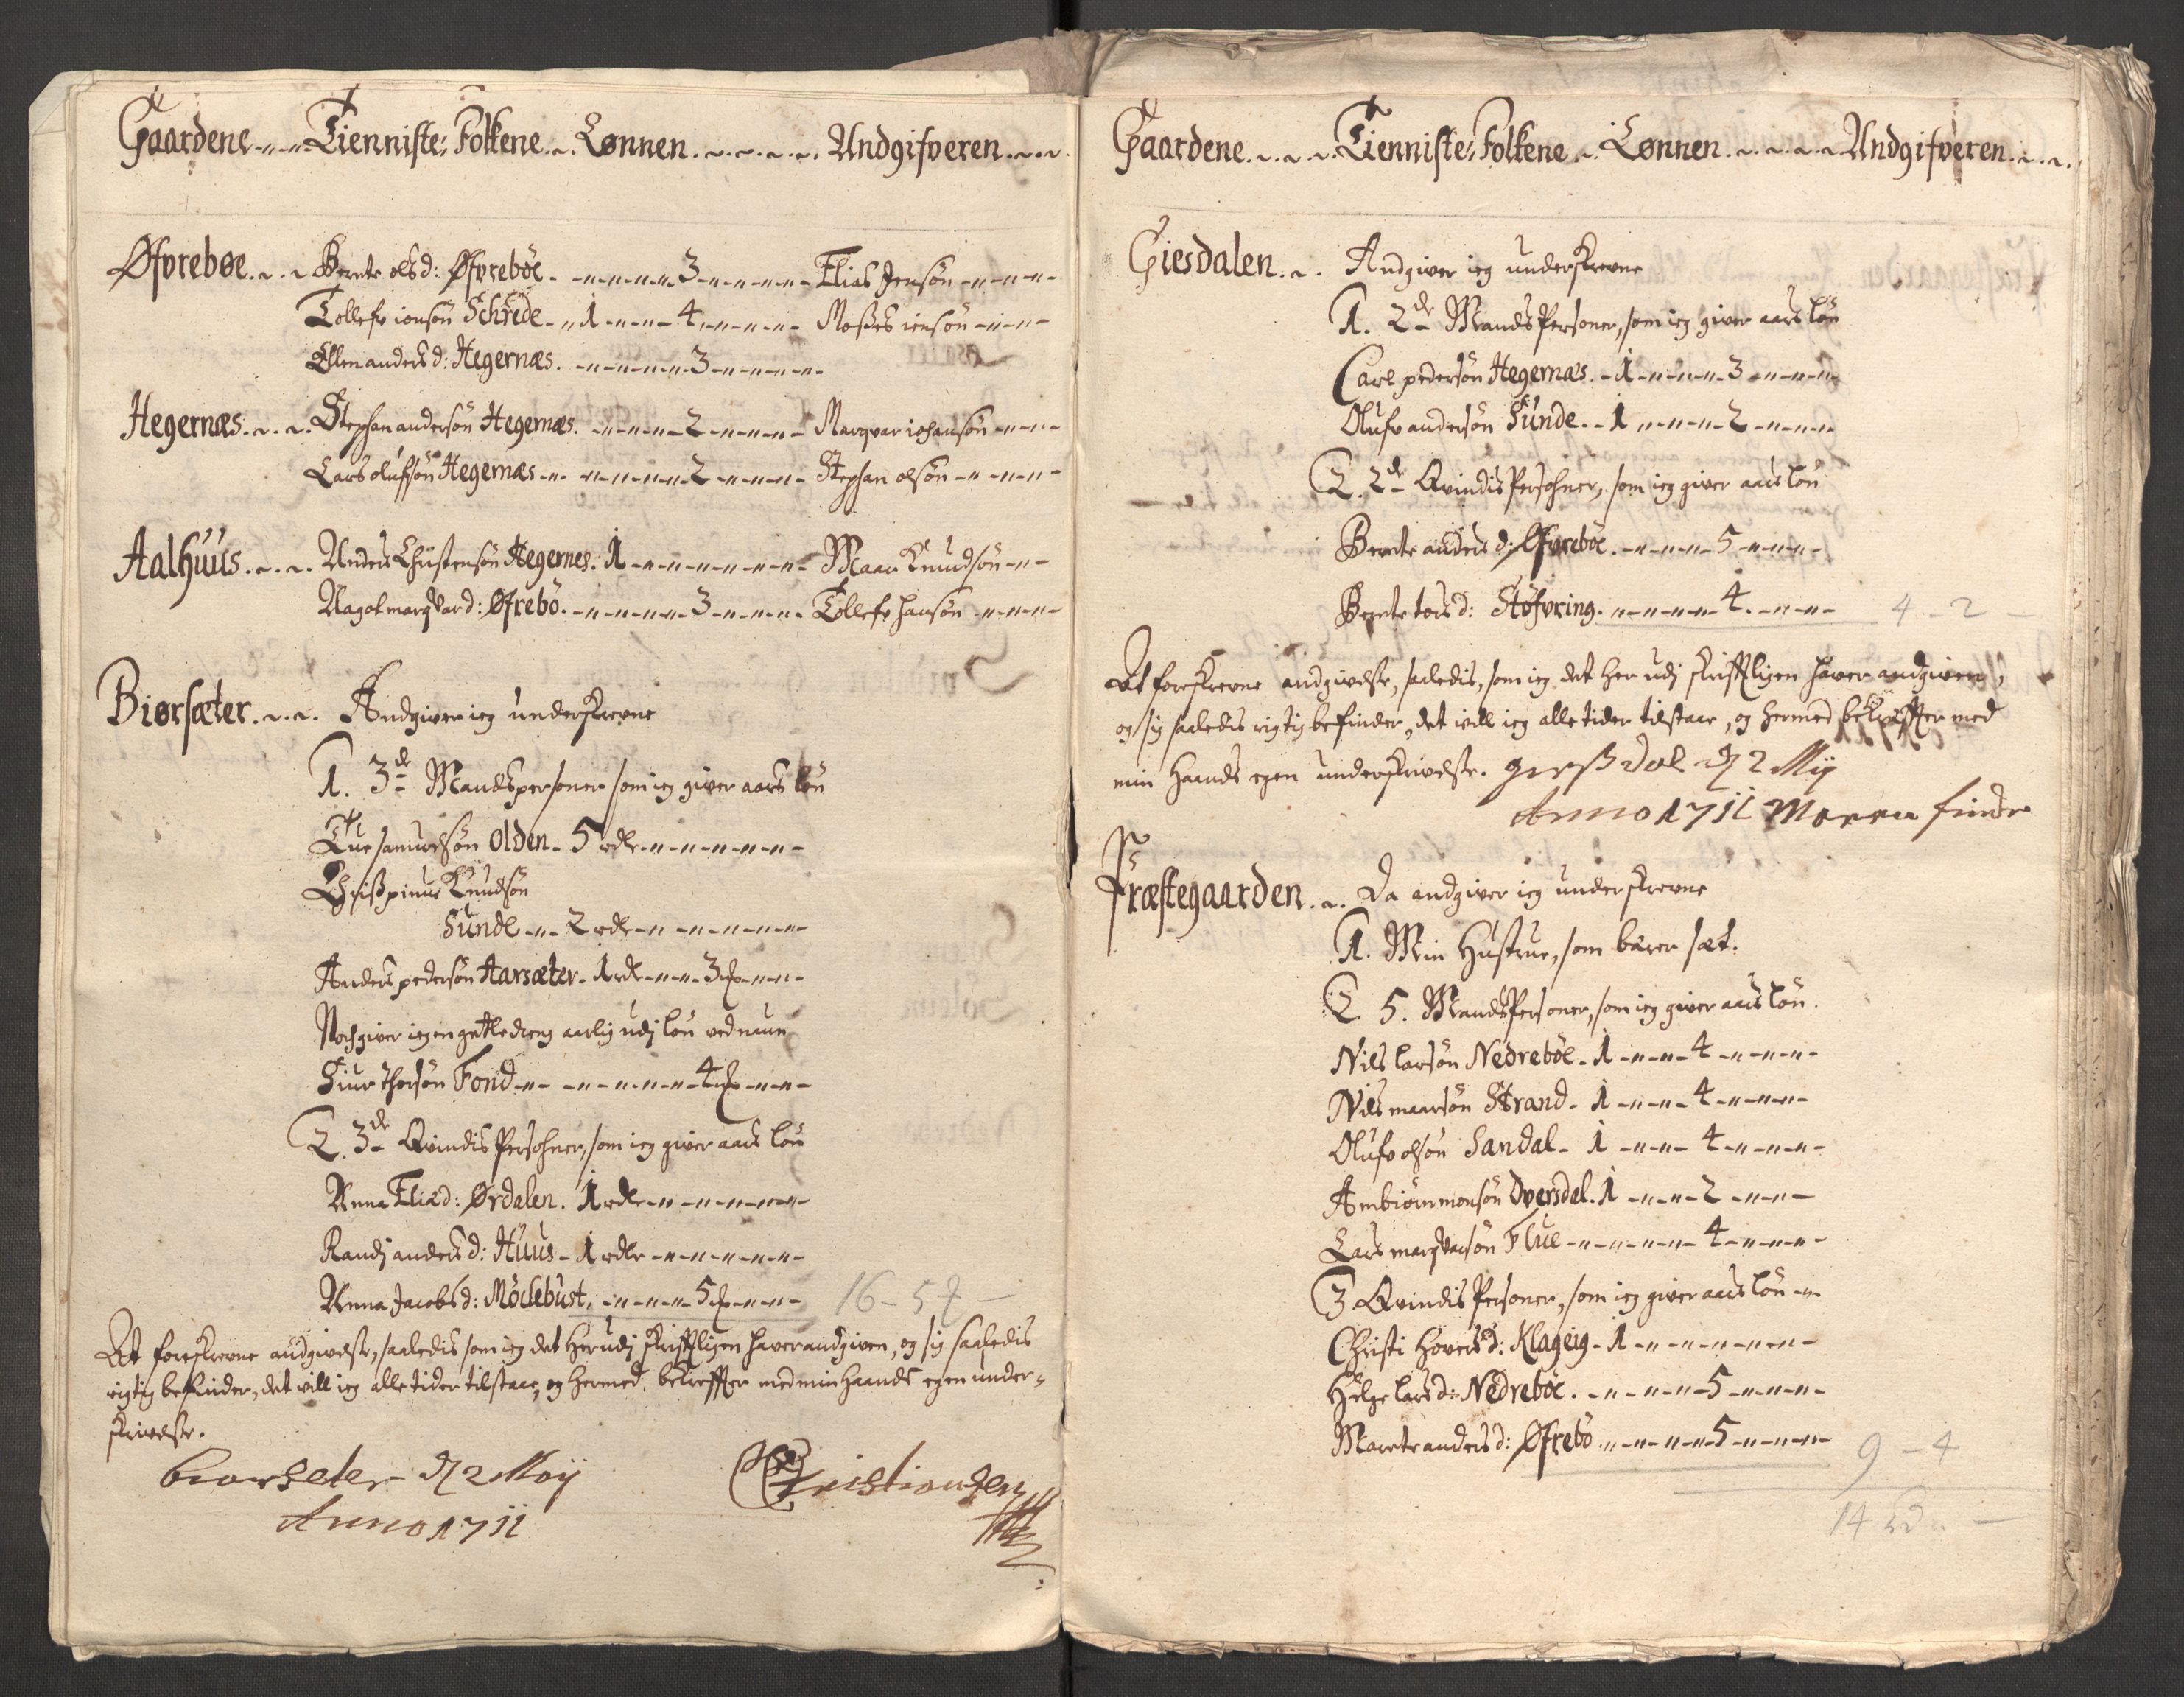 Gaardene Tienniste: Folkene Lønnen Andgifveren
Øfvrebøe Berete ols d: Øfvreböe 3 Elias Jensön
Tollefv ionsön Schrede 1 4 Moses iensön
Ellen anders d: Hegernæs 3
Hegernæs Stephan andersön Hegernæs 2 Marqvar iohansön
Lars olufsön Hegernæs 2 Stephan olsön
Aalhuus Anders Christensön Hegernes 1 Maar Knudsön
Ragel marqvar d: Øfrebö 3 Tollefv hansön
Biørsæter Andgiver ieg underskrevne
1. 3de Mandspersoner som ieg giver aars lön
Tue samuelsön Olden 5 rdlr
Chrispinus Knudsön
Sunde 2 rdlr
Anders pedersön Aarsæter 1 rdlr 3
Noch giver ieg en giætledreng aarlig udj lön ved nun
Siur Thorsön Fond 4
2. 3de Qvindis Persohner, som ieg giver aars lön
Anna Elias d: Ørdalen 1 rdlr
Randj anders d: Huus 1 rdlr
Anna Jacobs d: Möclebust 5 16 - 5
At foreskrevne andgivelse, saaledis som ieg det herudj skriftligen haver andgiven, og sig saaledis
rigtig befinder, det vill ieg alle tider tilstaae, og hermed bekrefter med min haands egen under-
skrivelse.
biorseter d 2 Maij Christian
Anno 1711
Gaardene Tienniste: Folkene Lønnen Andgifveren
Giesdalen Andgiver ieg underskrevne
1. 2de Mands Personer, som ieg giver aars lön
Carl pedersön Hegernæs 1 3
Olufv andersön Sunde 1 2
2. 2de Qvindis Persohner, som ieg giver aars lön
Berete anders d: Øfvreböe 5
Berete lars d: Støfvring 4 4 - 2
At foreskrevne andgivelse, saaledis, som ieg det her udj skriftligen haver andgiven,
og sig saaledis rigtig befinder, det vill ieg alle tider tilstaae, og hermed bekrefter med
min haands egen underskrivelse. giesdal d 2 Mij
Anno 1711 Maren finde
Præstegaarden Da andgiver ieg underskrevne
1. Min Hustrue, som bærer sæt.
2. 5. Mands Personer, som ieg giver aars lön.
Nils larsön Nedreböe 1 4
Nils maarsön Strand 1 4
Olufv olsön Sandal 1 4
Ambiörn monsön Dversdal 1 2
Lars marqvarsön Flue 4
3 Qvindis Personer, som ieg giver aars lön
Christi hovers d: Klageig 1
Helge lars d: Nedreböe 5
Marete anders d: Øfrebö 5 9 - 4
14